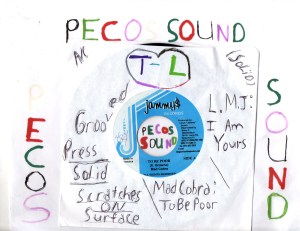 PECOS SOUND
AK
(Solid)
T-L
jammy's
RECORDS
Grooved
Press
Solid
Scratches
ON
Surface
L.M.J:
I Am
Yours
PECOS
SOUND
TO BE POOR
Mad Cobra
Mad Cobra:
To Be Poor
PECOS
SOUND